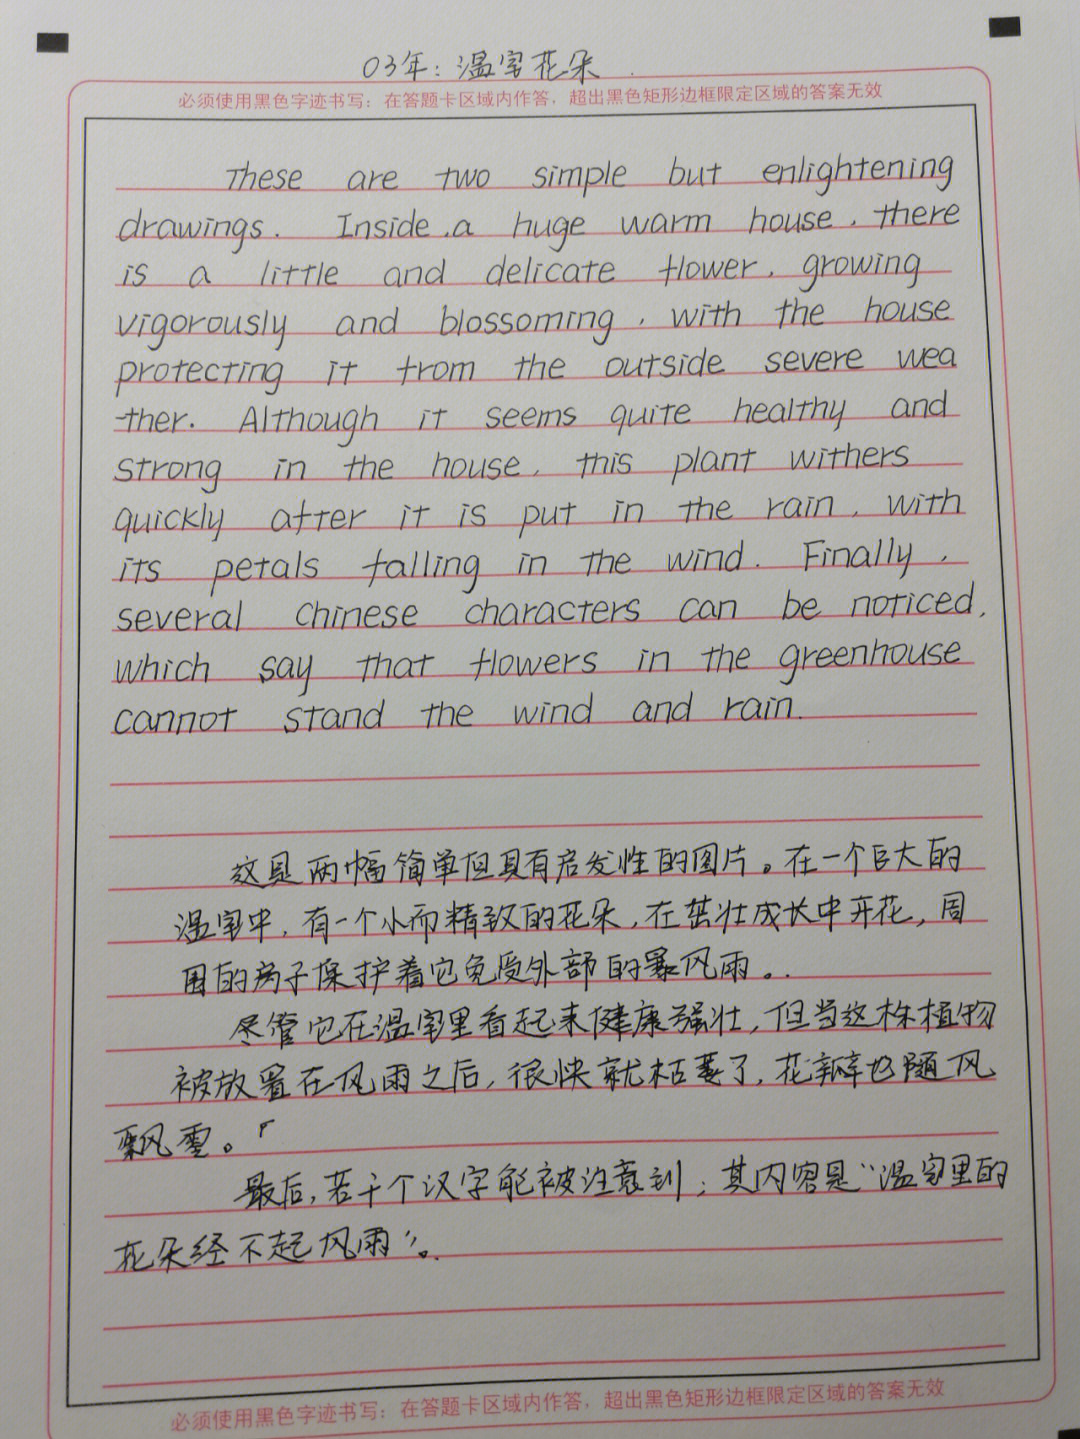 03年：温室花朵
必须使用黑色字迹书写：在答题卡区域内作答，超出黑色矩形边框限定区域的答案无效
These are two simple but enlightening
drawings. Inside a huge warm house, there
is a little and delicate flower, growing
vigorously and blossoming, with the house
protecting it from the outside severe wea
-ther. Although it seems quite healthy and
strong in the house, this plant withers
quickly after it is put in the rain, with
its petals falling in the wind. Finally,
several Chinese characters can be noticed,
which say that flowers in the greenhouse
cannot stand the wind and rain.
这是两幅简单但具有启发性的图片。在一个巨大的
温室中，有一个小而精致的花朵，在茁壮成长中开花，周
围的房子保护着它免受外部的暴风雨。
尽管它在温室里看起来健康强壮，但当这株植物
被放置在风雨之后，很快就枯萎了，花瓣也随风
飘零。
最后，若干个汉字能被注意到；其内容是“温室里的
花朵经不起风雨”。
必须使用黑色字迹书写：在答题卡区域内作答，超出黑色矩形边框限定区域的答案无效